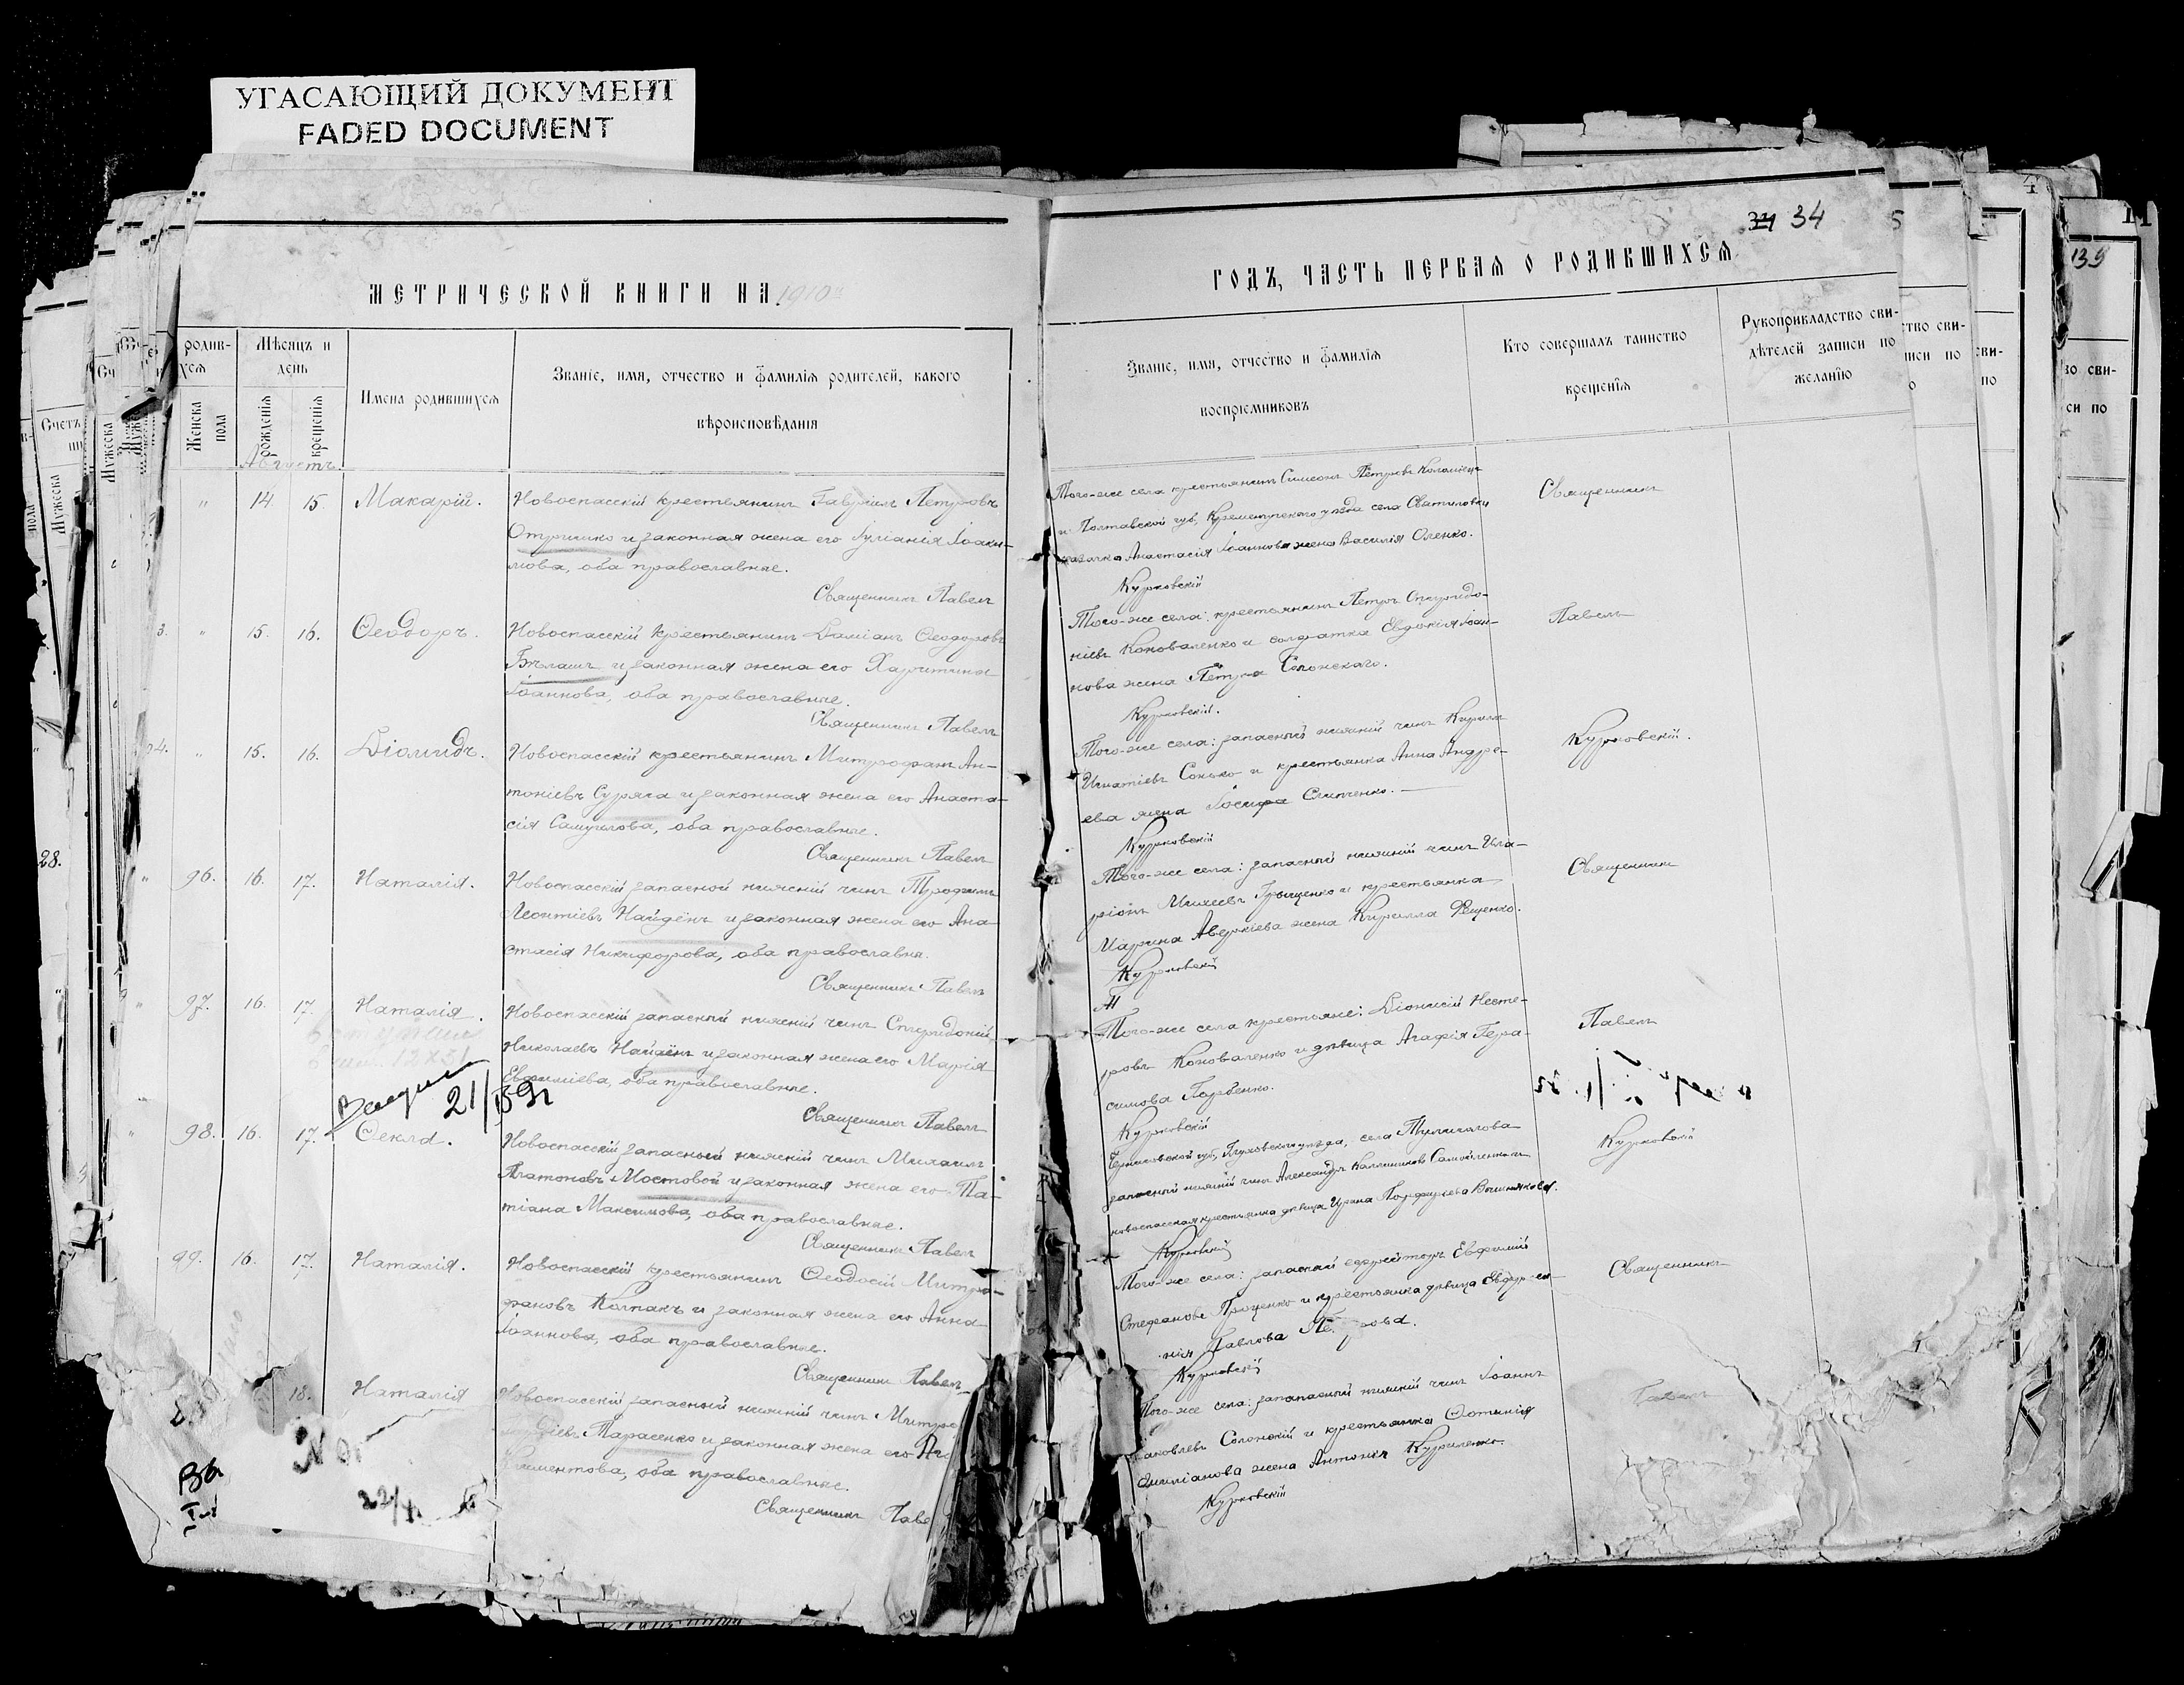 УГАСАЮЩИЙ ДОКУМЕНТ
FADED DOCUMENT
34
МЕТРИЧЕСКОЙ КНИГИ НА 1910
ГОДЪ, ЧАСТЬ ПЕРВАЯ О РОДИВШИХСЯ
родив-
хся
Женска пола
Мѣсяцъ и день
рожденія
крещенія
Имена родившихся
Званіе, имя, отчество и фамилія родителей, какого
вѣроисповѣданія
Званіе, имя, отчество и фамилія
воспріемниковъ
Кто совершалъ таинство
крещенія
Рукоприкладство сви-
дѣтелей записи по
желанію
Августъ
14 15. Макарій.
Новоспасскій крестьянинъ Гавріилъ Петровъ
Отришко и законная жена его Іуліанія Іоаки-
мова, оба православные.
Священникъ Павелъ
Того-же села крестьянинъ Симеонъ Петровъ Коломіецъ
и Полтавской губ. Кременчугскаго уѣзда села Святиловки
казачка Анастасія Іоаннова жена Василія Оленко.
Курковскій
Священникъ
3. 15. 16. Ѳеодоръ.
Новоспасскій крестьянинъ Даміанъ Ѳеодоровъ
Бѣлашъ и законная жена его Харитина
Іоаннова, оба православные.
Священникъ Павелъ
Того-же села: крестьянинъ Петръ Спиридо-
ніевъ Коноваленко и солдатка Евдокія Іоан-
нова жена Петра Солонскаго.
Курковскій.
Павелъ
15. 16. Діомидъ.
Новоспасскій крестьянинъ Митрофанъ Ан-
тоніевъ Суряга и законная жена его Анаста-
сія Самуилова, оба православные.
Священникъ Павелъ
Того-же села: запасный нижній чинъ Кирилл
Игнатіевъ Сонько и крестьянка Анна Андре-
ева жена Іосифа Слипченко.
Курковскій
Курковскій.
96. 16. 17. Наталія.
Новоспасскій запасной нижній чинъ Трофимъ
Леонтіевъ Найдёнъ и законная жена его Ана-
стасія Никифорова, оба православны.
Священникъ Павелъ
Того-же села: запасный нижній чинъ Ила-
ріонъ Михеевъ Грыщенко и крестьянка
Марина Аверкіева жена Кирилла Фещенко.
Курковскій
Священникъ
97. 16. 17. Наталія.
Новоспасскій запасный нижній чинъ Спиридоній
Николаевъ Найдёнъ и законная жена его Марія
Евфиміева, оба православные.
Священникъ Павелъ
Того-же села крестьяне: Діонисій Несте-
ровъ Коноваленко и дѣвица Агафія Гера-
симова Горбенко.
Курковскій
Павелъ
98. 16. 17. Ѳекла.
Новоспасскій запасный нижній чинъ Михаилъ
Платоновъ Мостовой и законная жена его Та-
тіана Максимова, оба православные.
Священникъ Павелъ
Черниговской губ. Глуховскаго уѣзда, села
запасный нижній чинъ Александръ Каллиниковъ Самойленко и
новоспасская крестьянка дѣвица Ирина Порфирьева Вишнякова.
Курковскій
Курковскій
99. 16. 17. Наталія.
Новоспасскій крестьянинъ Ѳеодосій Митро-
фановъ Колпакъ и законная жена его Анна
Іоаннова, оба православные.
Священникъ Павелъ
Того-же села: запасный ефрейторъ Евфимій
Стефановъ Проценко и крестьянка дѣвица
Павлова
Курковскій
Священникъ
18. Наталія
Новоспасскій запасный нижній чинъ
Тарасенко и законная жена его
Климентова, оба православные.
Священникъ Паве
Того-же села: запапасный нижній чинъ Іоаннъ
Іаковлевъ Солонскій и крестьянка Ѳотинія
Емиліанова жена Антонія Куриленко.
Курковскій
Павелъ